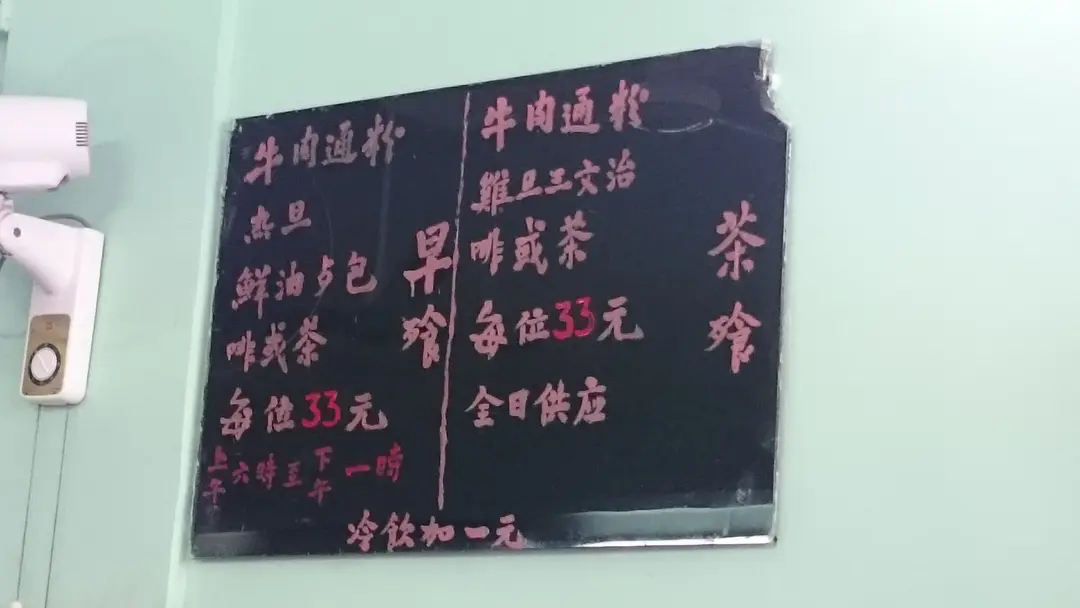 早飱
牛肉通粉
热旦
鮮油占包
啡或茶
每位33元
上午六時至下午一時
茶飱
牛肉通粉
雞旦三文治
啡或茶
每位33元
全日供应
冷飲加一元